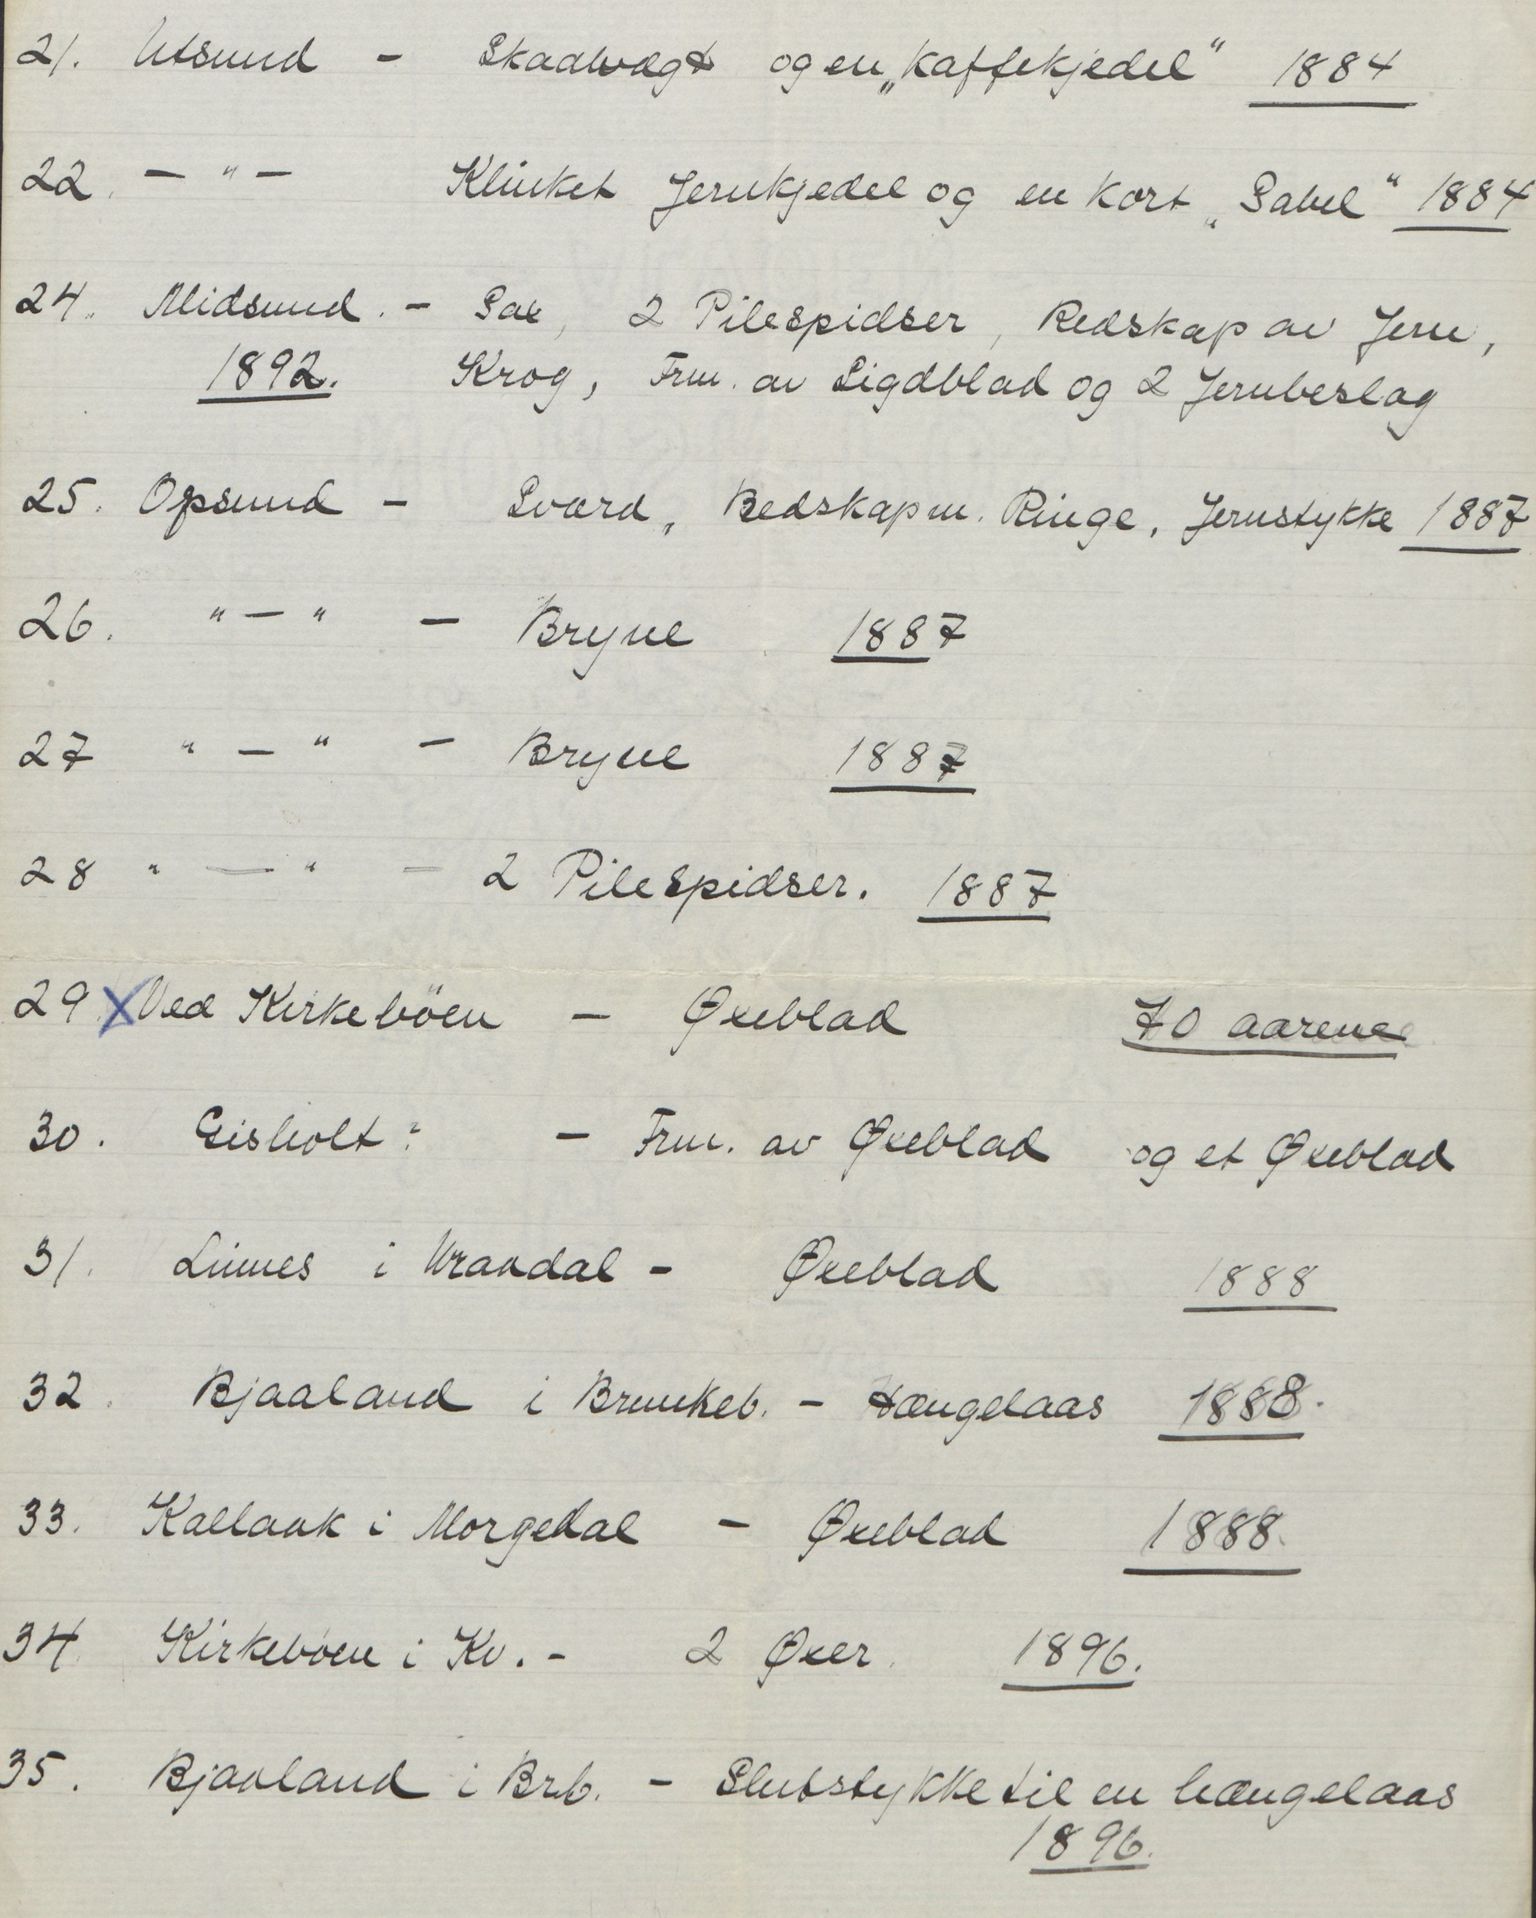 21. Utsund - Skaalvægt og en „Kaffekjedel" 1884
22. - " - Klinket Jernkjedel og en Kort „Sabel" 1884
24. Midsund. - Sax, 2 Pilespidser, Redskap av Jern,
1892. Krog, Frm. av Sigdblad og 2 Jernbeslag
25. Opsund - Sværd, Redskap m. Ringe, Jernstykke 1887
26. " - " - Bryne 1887
27 " - " - Bryne 1887
28 " - " - 2 Pilespidser. 1887
29. X Ved Kirkebøen - Øxeblad 70 aarene
30. Gisholt: - Frm. av Øxeblad og et Øxeblad
31. Linnes i Vraadal - Øxeblad 1888
32. Bjaaland i Brunkeb. - Hængelaas 1888.
33. Kallaak i Morgedal - Øxeblad 1888.
34. Kirkebøen i Kv. - 2 Øxer. 1896.
35. Bjaaland i Brb. - Slutstykke til en hængelaas
1896.